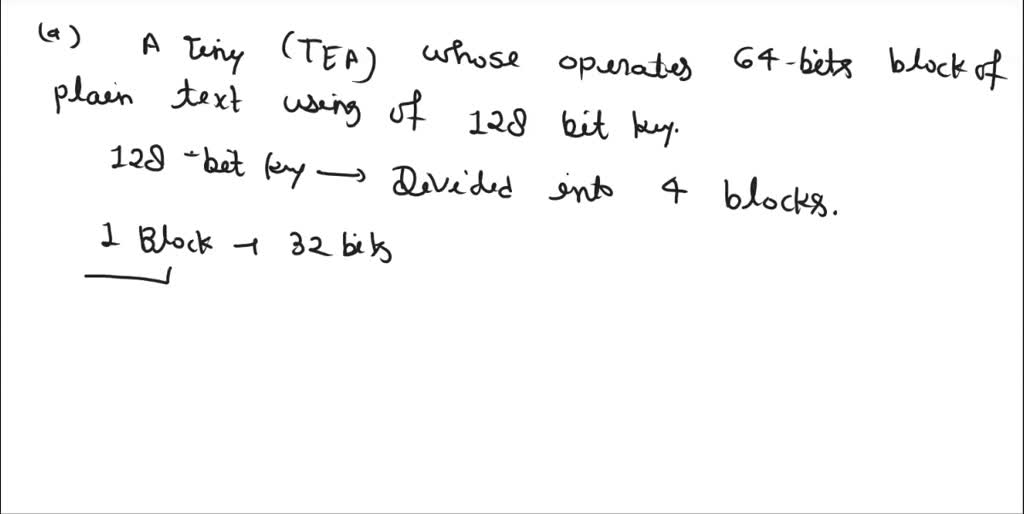 (a) A Tiny (TEA) whose operates 64-bits block of
plain text using of 128 bit key.
128-bit key → Divided into 4 blocks.
1 Block → 32 bits